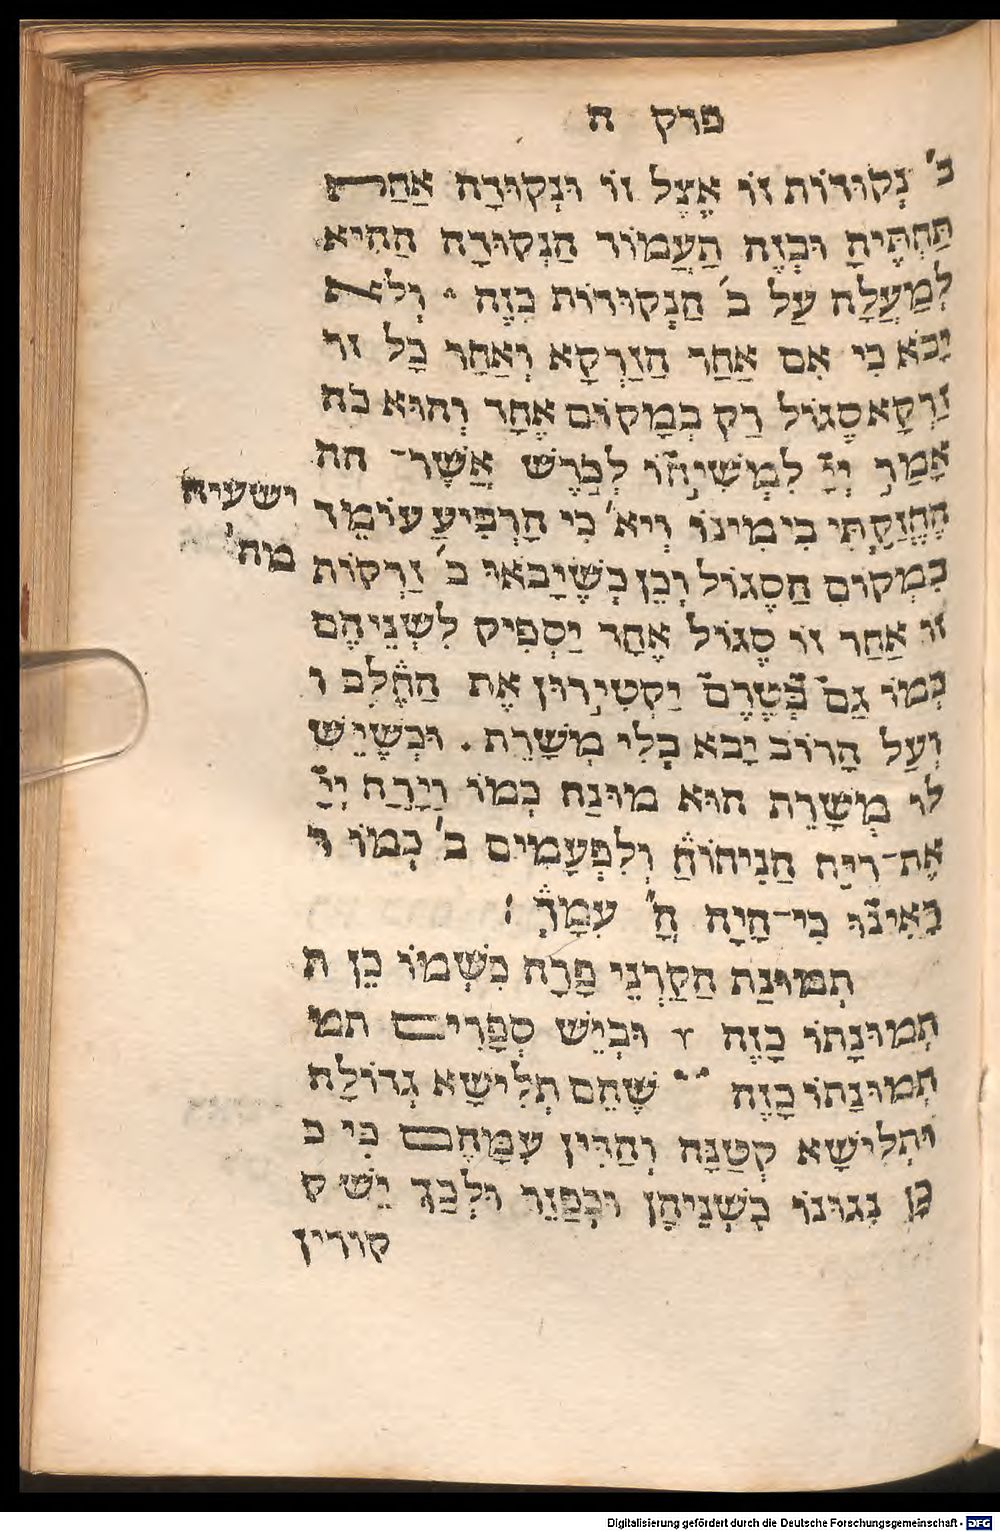 פרק ח
ב' נְקוּדוֹת זוֹ אֵצֶל זוֹ וּנְקוּדָה אַחַת
תַּחְתֶּיהָ וּבְזֶה הַעֲמוֹד הַנְקוּדָה הַהִיא
לְמַעֲלָה עַל ב' הַנְקוּדוֹת כָּזֶה וְלֹא
יָבֹא כִּי אִם אַחַר הַזַרְקָא וְאַחַר כָּל
זַרְקָא סֶגוֹל רַק בְּמָקוֹם אֶחָד וְהוּא כה
אָמַר יְיָ לִמְשִׁיחוֹ לְכֹרֶשׁ אֲשֶׁר־ הח
הֶחֱזַקְתִּי בִימִינוֹ וְיא' כִּי הָרְפִיעַ עוֹמֵד
ישעיה
מה
בִּמְקוֹם הַסֶגוֹל וְכֵן כְּשֶׁיָבֹאוּ ב' זַרְקוֹת
זוֹ אַחַר זוֹ סֶגוֹל אֶחָד יַסְפִּיק לִשְׁנֵיהֶם
כְּמוֹ גַּם בְּטֶרֶם יַקְטִירוּן אֶת הַחֵלֶב ו
וְעַל הָרוֹב יָבֹא בְּלִי מְשָׁרֵת . וּכְשֶׁיֵּשׁ
לוֹ מְשָׁרֵת הוּא מוּנַח כְּמוֹ וַיָּרַח יְיָ
אֶת־רֵיחַ הַנִיחוֹחַ וְלִפְעָמִים ב' כְּמוֹ ר
רָאִינוּ כִּי־הָיָה ה' עִמָּךְ :
תְּמוּנַת הַקַרְנֵי פָרָה כִּשְׁמוֹ כֵּן ת
תְּמוּנָתוֹ כָּזֶה וּבְיֵשׁ סְפָרִים תמ
תְּמוּנָתוֹ כָּזֶה שֶׁהֵם תְּלִישָׁא גְדוֹלָה
וּתְלִישָׁא קְטַנָּה וְהַדִּין עִמָּהֶם כִּי כ
כֵן נִגוּנוֹ כִּשְׁנֵיהֶן וּכְפָזֵר וּלְכָךְ יֵשׁ ק
קורין
Digitalisierung gefördert durch die Deutsche Forschungsgemeinschaft - DFG